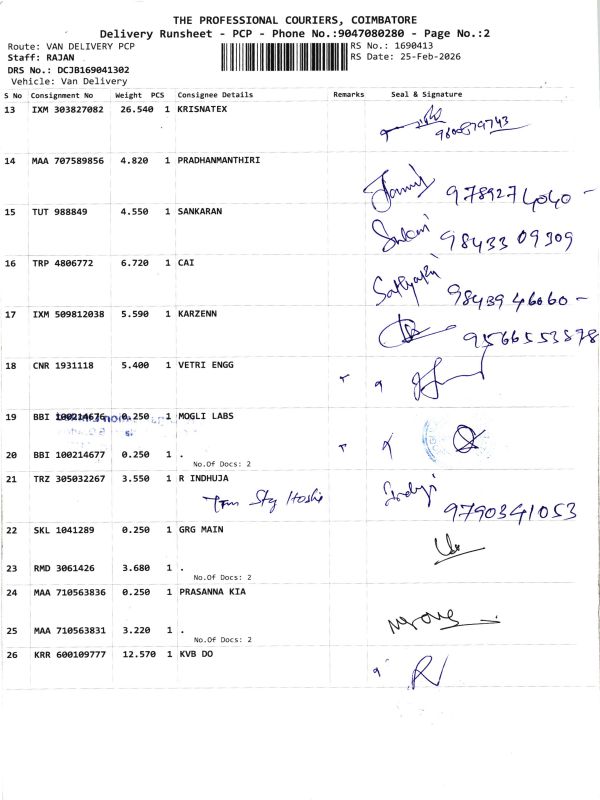 THE PROFESSIONAL COURIERS, COIMBATORE
Delivery Runsheet - PCP - Phone No.:9047080280 - Page No.:2
Route: VAN DELIVERY PCP RS No.: 1690413
Staff: RAJAN RS Date: 25-Feb-2026
DRS No.: DCJB169041302
Vehicle: Van Delivery
S No Consignment No Weight PCS Consignee Details Remarks Seal & Signature
13 IXM 303827082 26.540 1 KRISNATEX
14 MAA 707589856 4.820 1 PRADHANMANTHIRI
9789274040 -
15 TUT 988849 4.550 1 SANKARAN
98433 09309
16 TRP 4806772 6.720 1 CAI
98439 46060 -
17 IXM 509812038 5.590 1 KARZENN
9566553878
18 CNR 1931118 5.400 1 VETRI ENGG
19 BBI 100214676 0.250 1 MOGLI LABS
20 BBI 100214677 0.250 1 .
No.Of Docs: 2
21 TRZ 305032267 3.550 1 R INDHUJA
9790341053
22 SKL 1041289 0.250 1 GRG MAIN
23 RMD 3061426 3.680 1 .
No.Of Docs: 2
24 MAA 710563836 0.250 1 PRASANNA KIA
25 MAA 710563831 3.220 1 .
No.Of Docs: 2
26 KRR 600109777 12.570 1 KVB DO